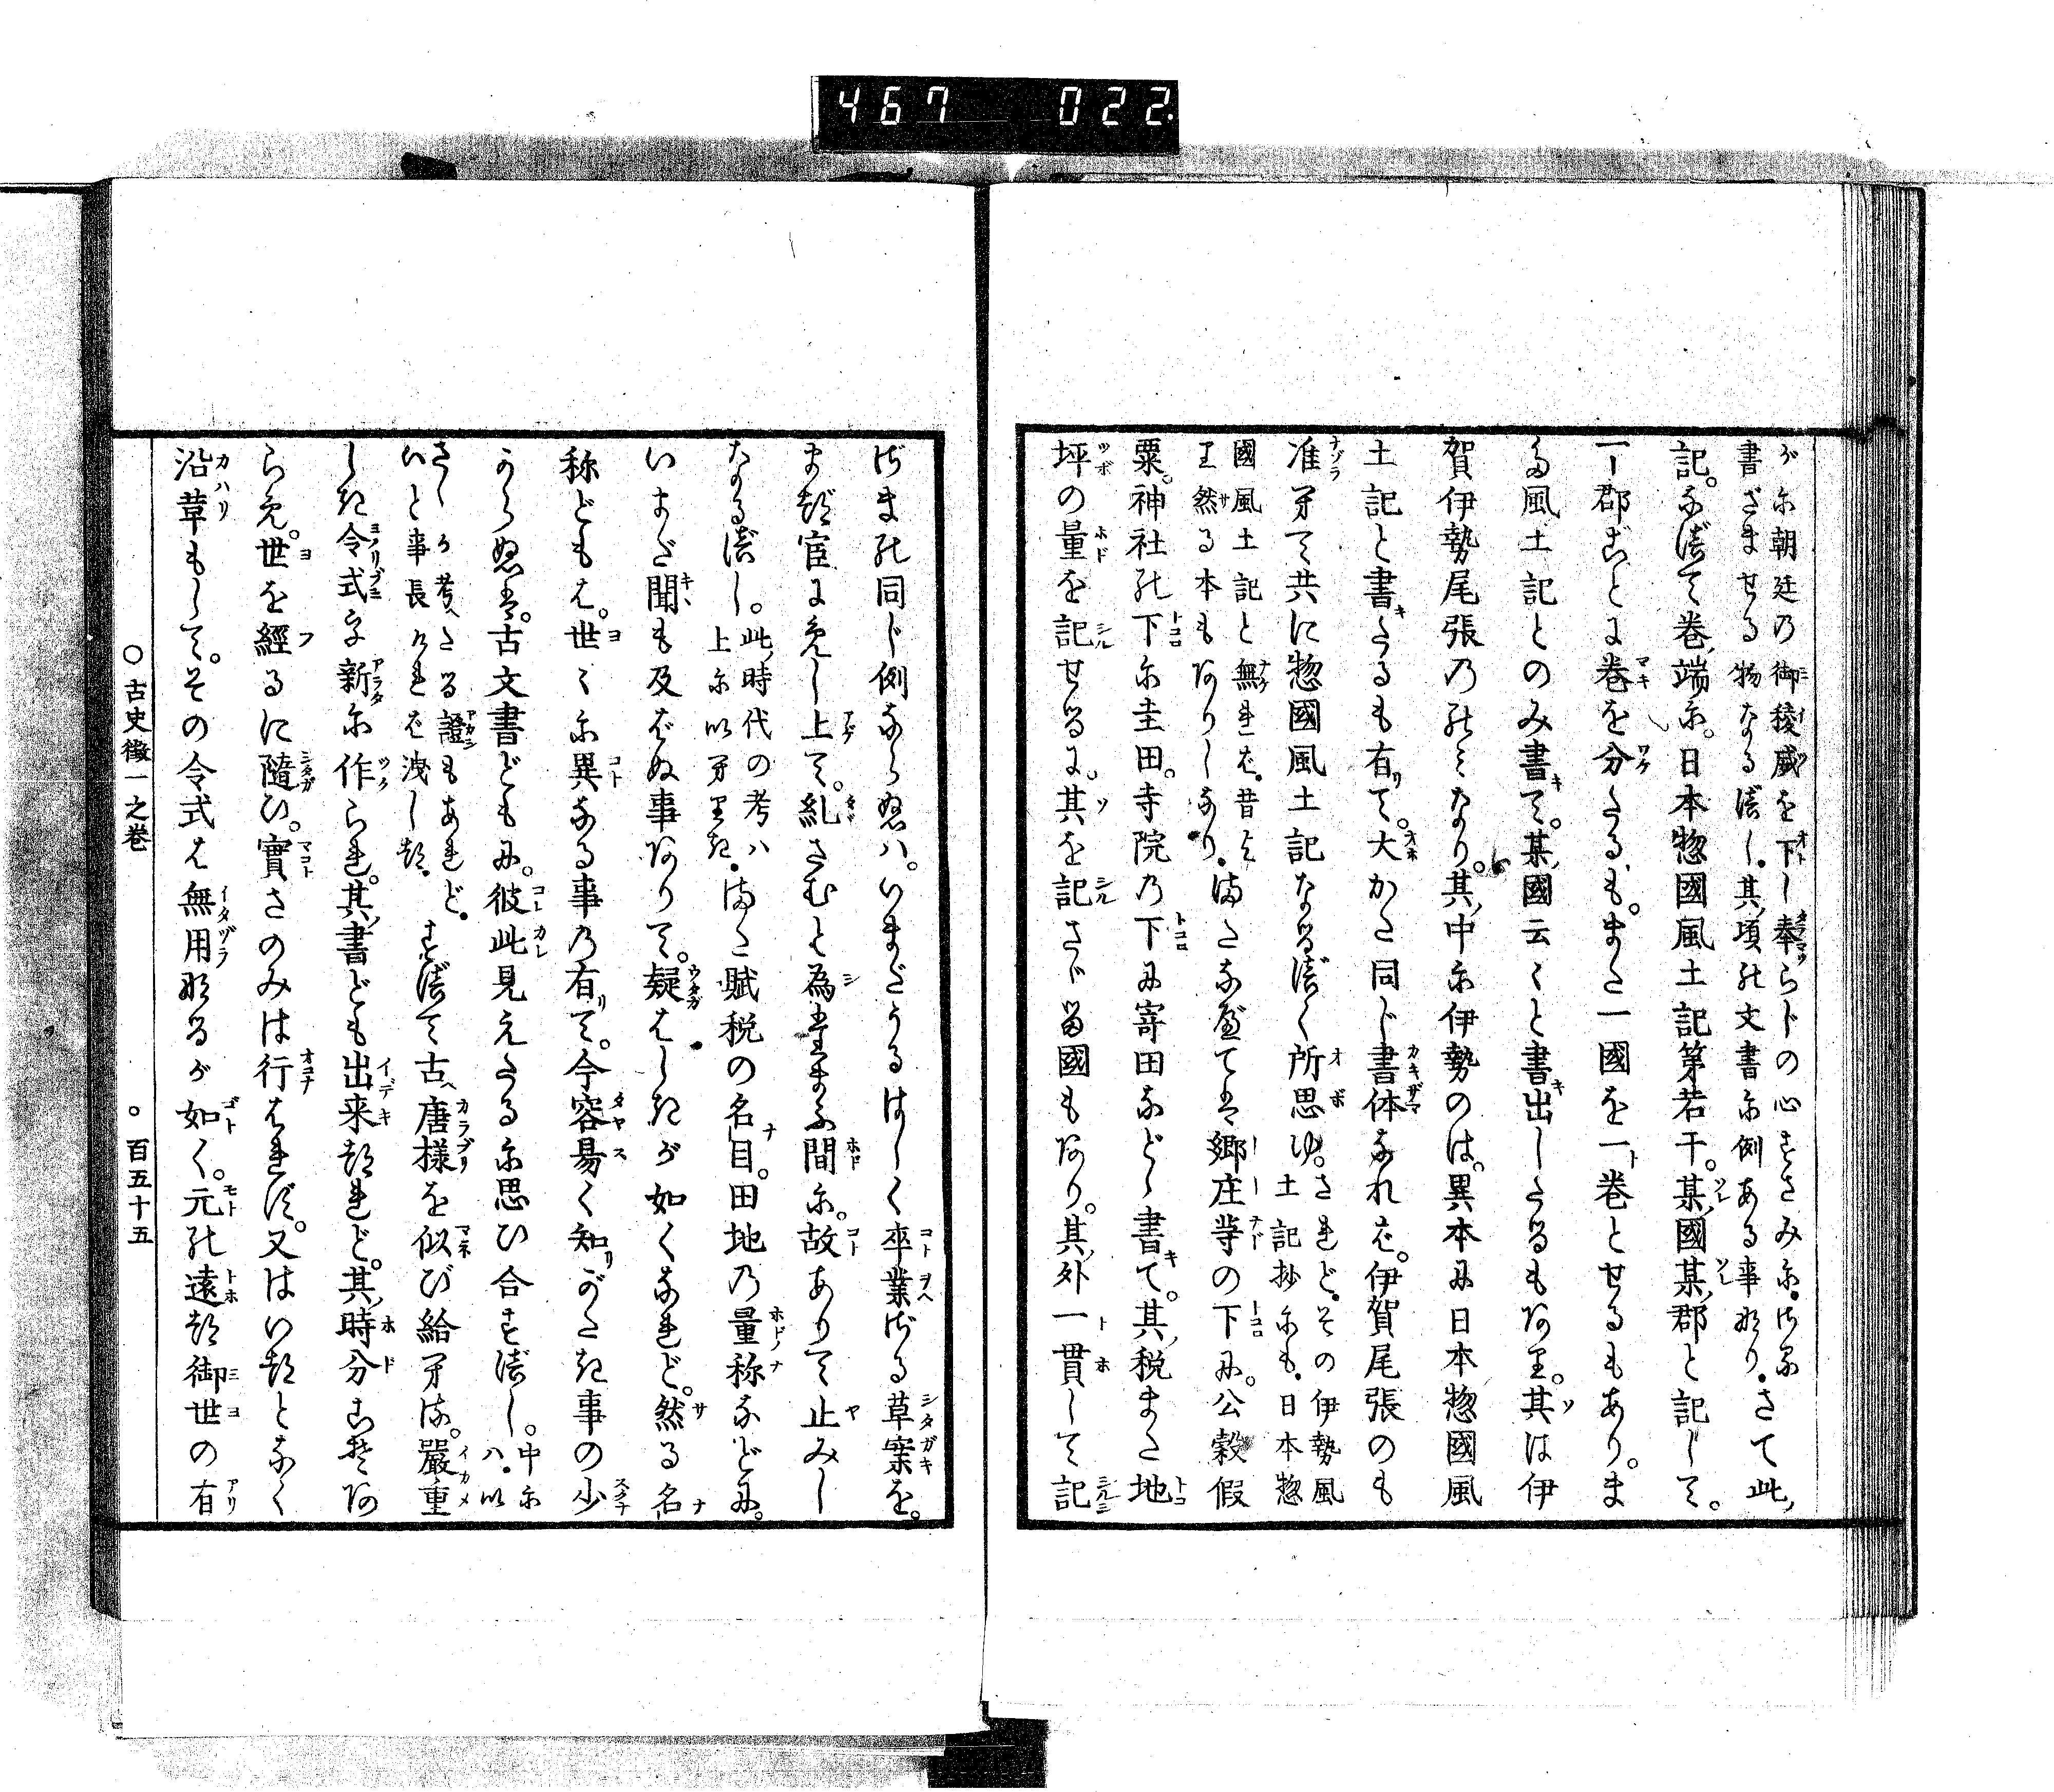 467 022
が朝廷乃御稜威を下し奉らじの心すさみに
書ざませる物なるべし其頃の文書に例ある事なりさて此
記なべて巻端に日本惣國風土記第若干某國某郡と記して
一郡ごとに巻を分たるもまた一國を一巻とせるもありま
た風土記とのみ書て某國云々と書出したるもあり其は伊
賀伊勢尾張乃のみなり其中に伊勢のは異本に日本惣國風
土記と書たるも有て大かた同じ書体なれば伊賀尾張のも
准へて共に惣國風土記なるべく所思ゆされどその伊勢風
土記抄にも日本惣
國風土記と無ければ昔より
然る本もありしなりまたなべては郷庄等の下に公穀假
粟神社の下に圭田寺院乃下に寄田など書て其税また地
坪の量を記せるに其を記さゞる國もあり其外一貫して記
ざまの同じ例ならぬはいまだうるはしく卒業ざる草案を
まづ官に上て糺さむと為たまふ間に故ありて止みし
なるべし此時代の考ハ
上に以へりきまた賦税の名目田地乃量称などに
いまだ聞も及ばぬ事ありて疑はしきが如くなれど然る名
称どもは世々に異なる事乃有て今容易く知がたき事の少
からぬは古文書どもに彼此見えたるに思ひ合すべし中に
ハ以
さゝか考へたる證もあれど
いと事長ければ洩しつすべて古へ唐様を似び給へば嚴重
しき令式を新に作られ其書ども出来つれど其時分こそあ
らめ世を經るに隨ひ實さのみは行はれず又はいつとなく
沿革もしてその令式は無用なるが如く元の遠つ御世の有
○古史徴一之巻 ○百五十五